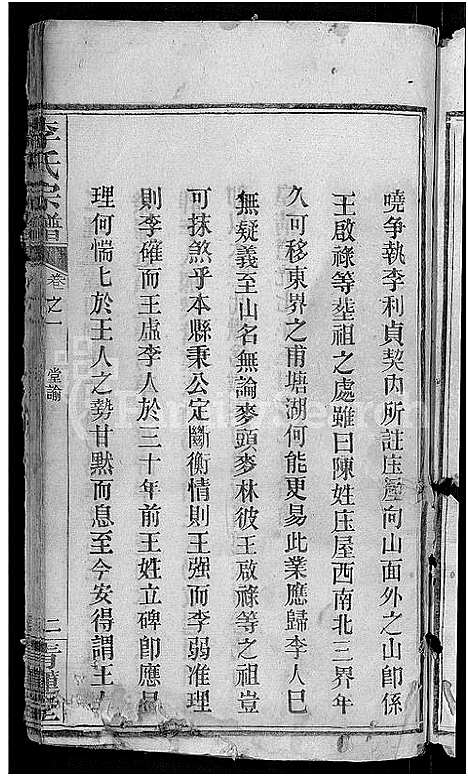 嘵争執李利貞契内所註庄屋向山面外之山即係
王啟祿等塟祖之處雖曰陳姓庄屋西南北三界年
久可移東界之甫塘湖何能更易此業應歸李人巳
無疑義至山名無論麥頭麥林彼王啟祿等之祖豈
可抹煞乎本縣秉公定斷衡情則王强而李弱准理
則李確而王虛李人於三十年前王姓立碑即應呈
理何惴匕於王人之勢甘默而息至今安得謂王人
李氏宗譜
卷之一
堂諭
二